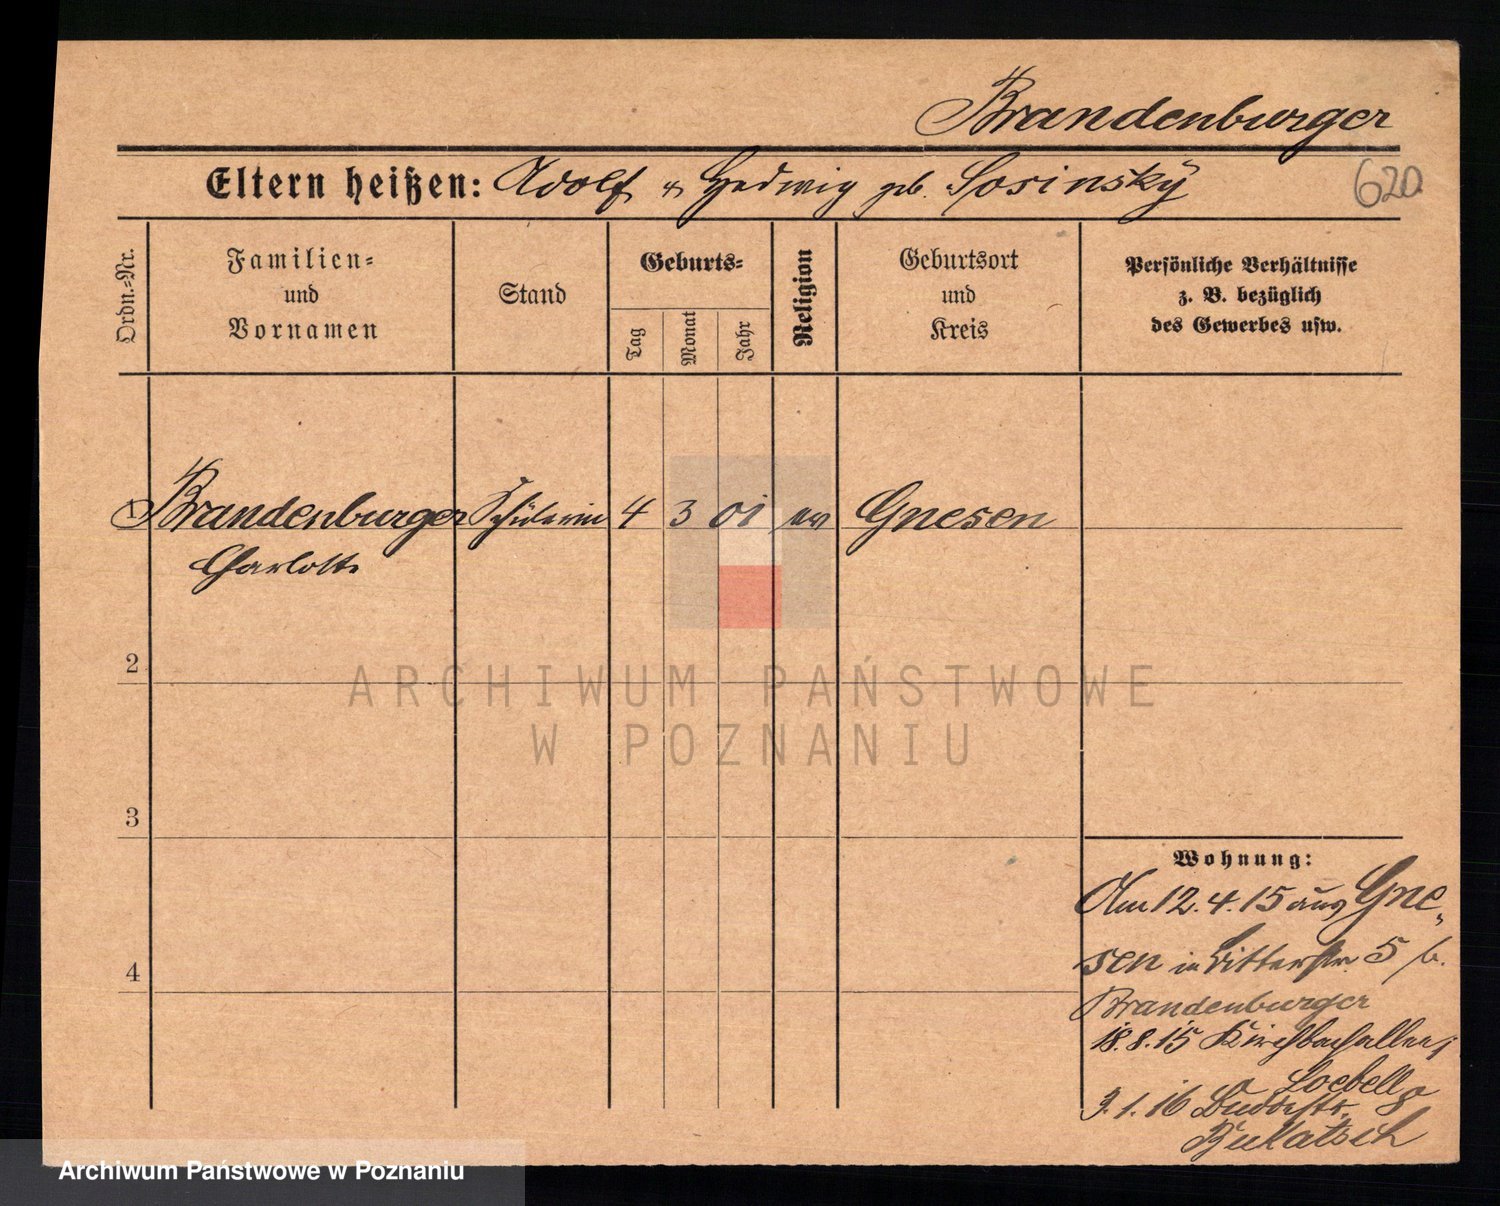 Brandenburger
Eltern heißen: Adolf u Hedwig geb. Sosinsky
620
Ordn.=Nr.
Familien=
und
Vornamen
Stand
Geburts=
Tag
Monat
Jahr
Religion
Geburtsort
und
Kreis
Persönliche Verhältnisse
z. B. bezüglich
des Gewerbes usw.
1 Brandenburger Schülerin 4 3 01 ev Gnesen
Charlotte
2
ARCHIWUM PAŃSTWOWE
W POZNANIU
3
4
Wohnung:
Am 12.4.15 aus Gne
sen in Ritterstr. 5 b.
Brandenburger
18.8.15 Kirchbachallee
Loebell
3.1.16 Buddestr. 8
Bukatsch
Archiwum Państwowe w Poznaniu